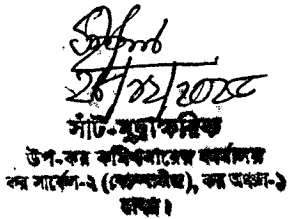 ২৮/১২/২০২৮
সাঁট-মুদ্রাক্ষরিক
উপ-কর কমিশনারের কার্যালয়
কর সার্কেল-২ (কোম্পানীজ), কর অঞ্চল-১
ঢাকা।